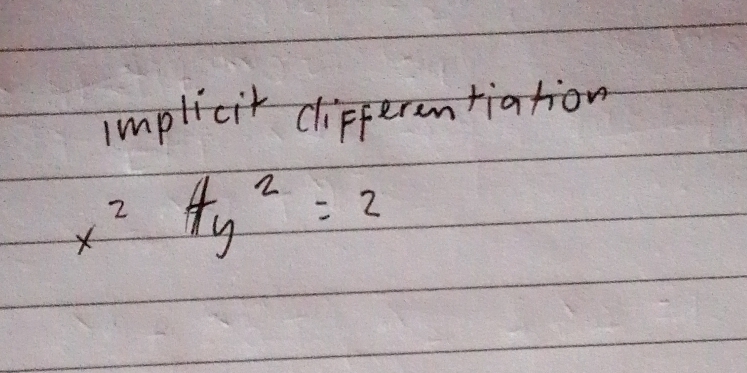 implicit differentiation
x² + y² = 2